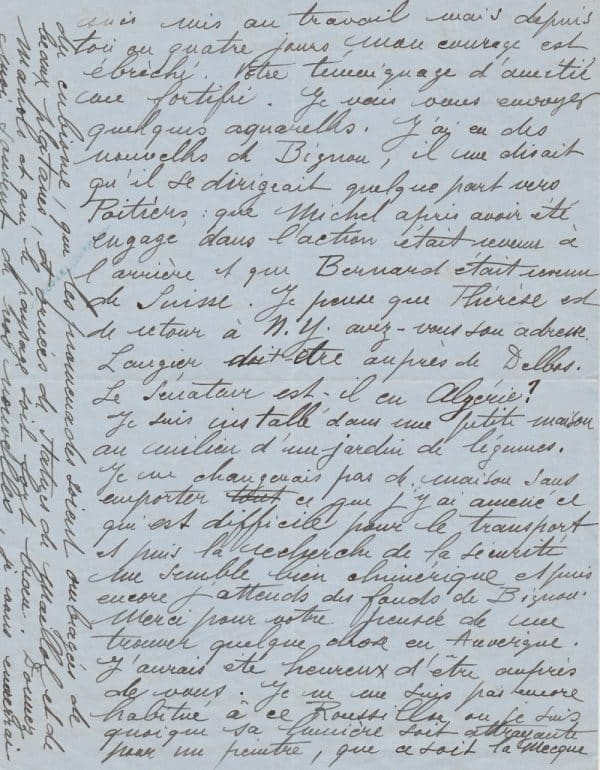 mis au travail mais depuis
toi ou quatre jours mon courage est
ébréché. Votre témoignage d'amitié
me fortifie. Je vais vous envoyer
quelques aquarelles. J'ai eu des
nouvelles de Bignou, il me disait
qu'il se dirigeait quelque part vers
Poitiers : que Michel après avoir été
engagé dans l'action était revenu à
l'arrière et que Bernard était revenu
de Suisse. Je pense que Thérèse est
de retour à N.Y. avez-vous son adresse.
Laugier doit être auprès de Delbos.
Le Sénateur est-il en Algérie?
Je suis installé dans une petite maison
au milieu d'un jardin de légumes.
Je ne changerais pas de maison sans
emporter tout ce que j'y ai amené ce
qui est difficile pour le transport
et puis la recherche de la sécurité
me semble bien chimérique et puis
encore j'attends des fonds de Bignou.
Merci pour votre pensée de me
trouver quelque chose en Auvergne.
J'aurais été heureux d'être auprès
de vous. Je ne me suis pas encore
habitué à ce Roussillon où je suis
quoique sa lumière soit attrayante
pour un peintre, que ce soit la Mecque
du cubisme, que les promenades soient ombragées de
beaux platanes, et ornées de statues de Maillol et de
Manolo et que le paysage soit fort beau. Donnez
moi souvent de vos nouvelles, je vous enverrai